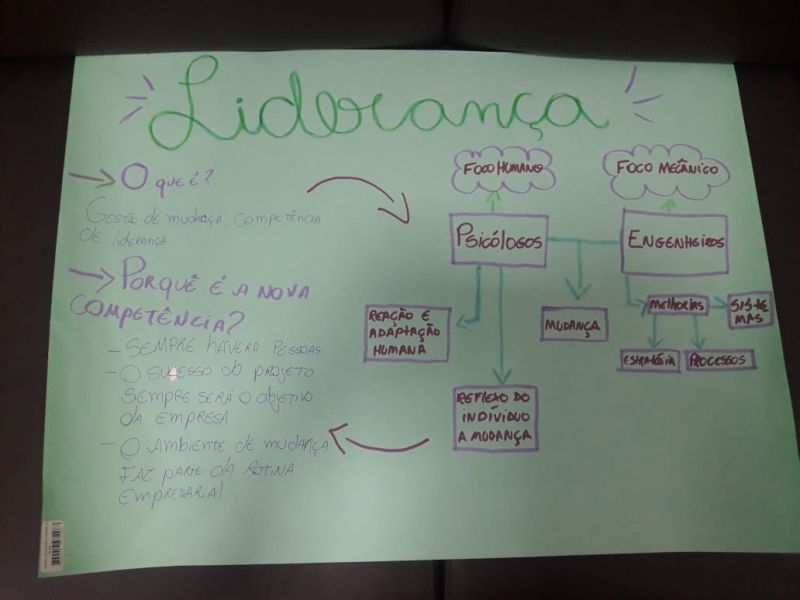 Liderança
O que é?
Gestão de mudaça, competência
de liderança
Porquê é a nova
competência?
- Sempre havera pessoas
- O sucesso do projeto
sempre será o objetivo
da empresa
- O ambiente de mudança
faz parte da rotina
empresarial
Foco Humano
Foco Mecânico
Psicólogos
Engenheiros
Reação e
adaptação
humana
Mudança
Reflexo do
indivíduo
a mudança
Melhorias
Siste
mas
Estratégia
Processos